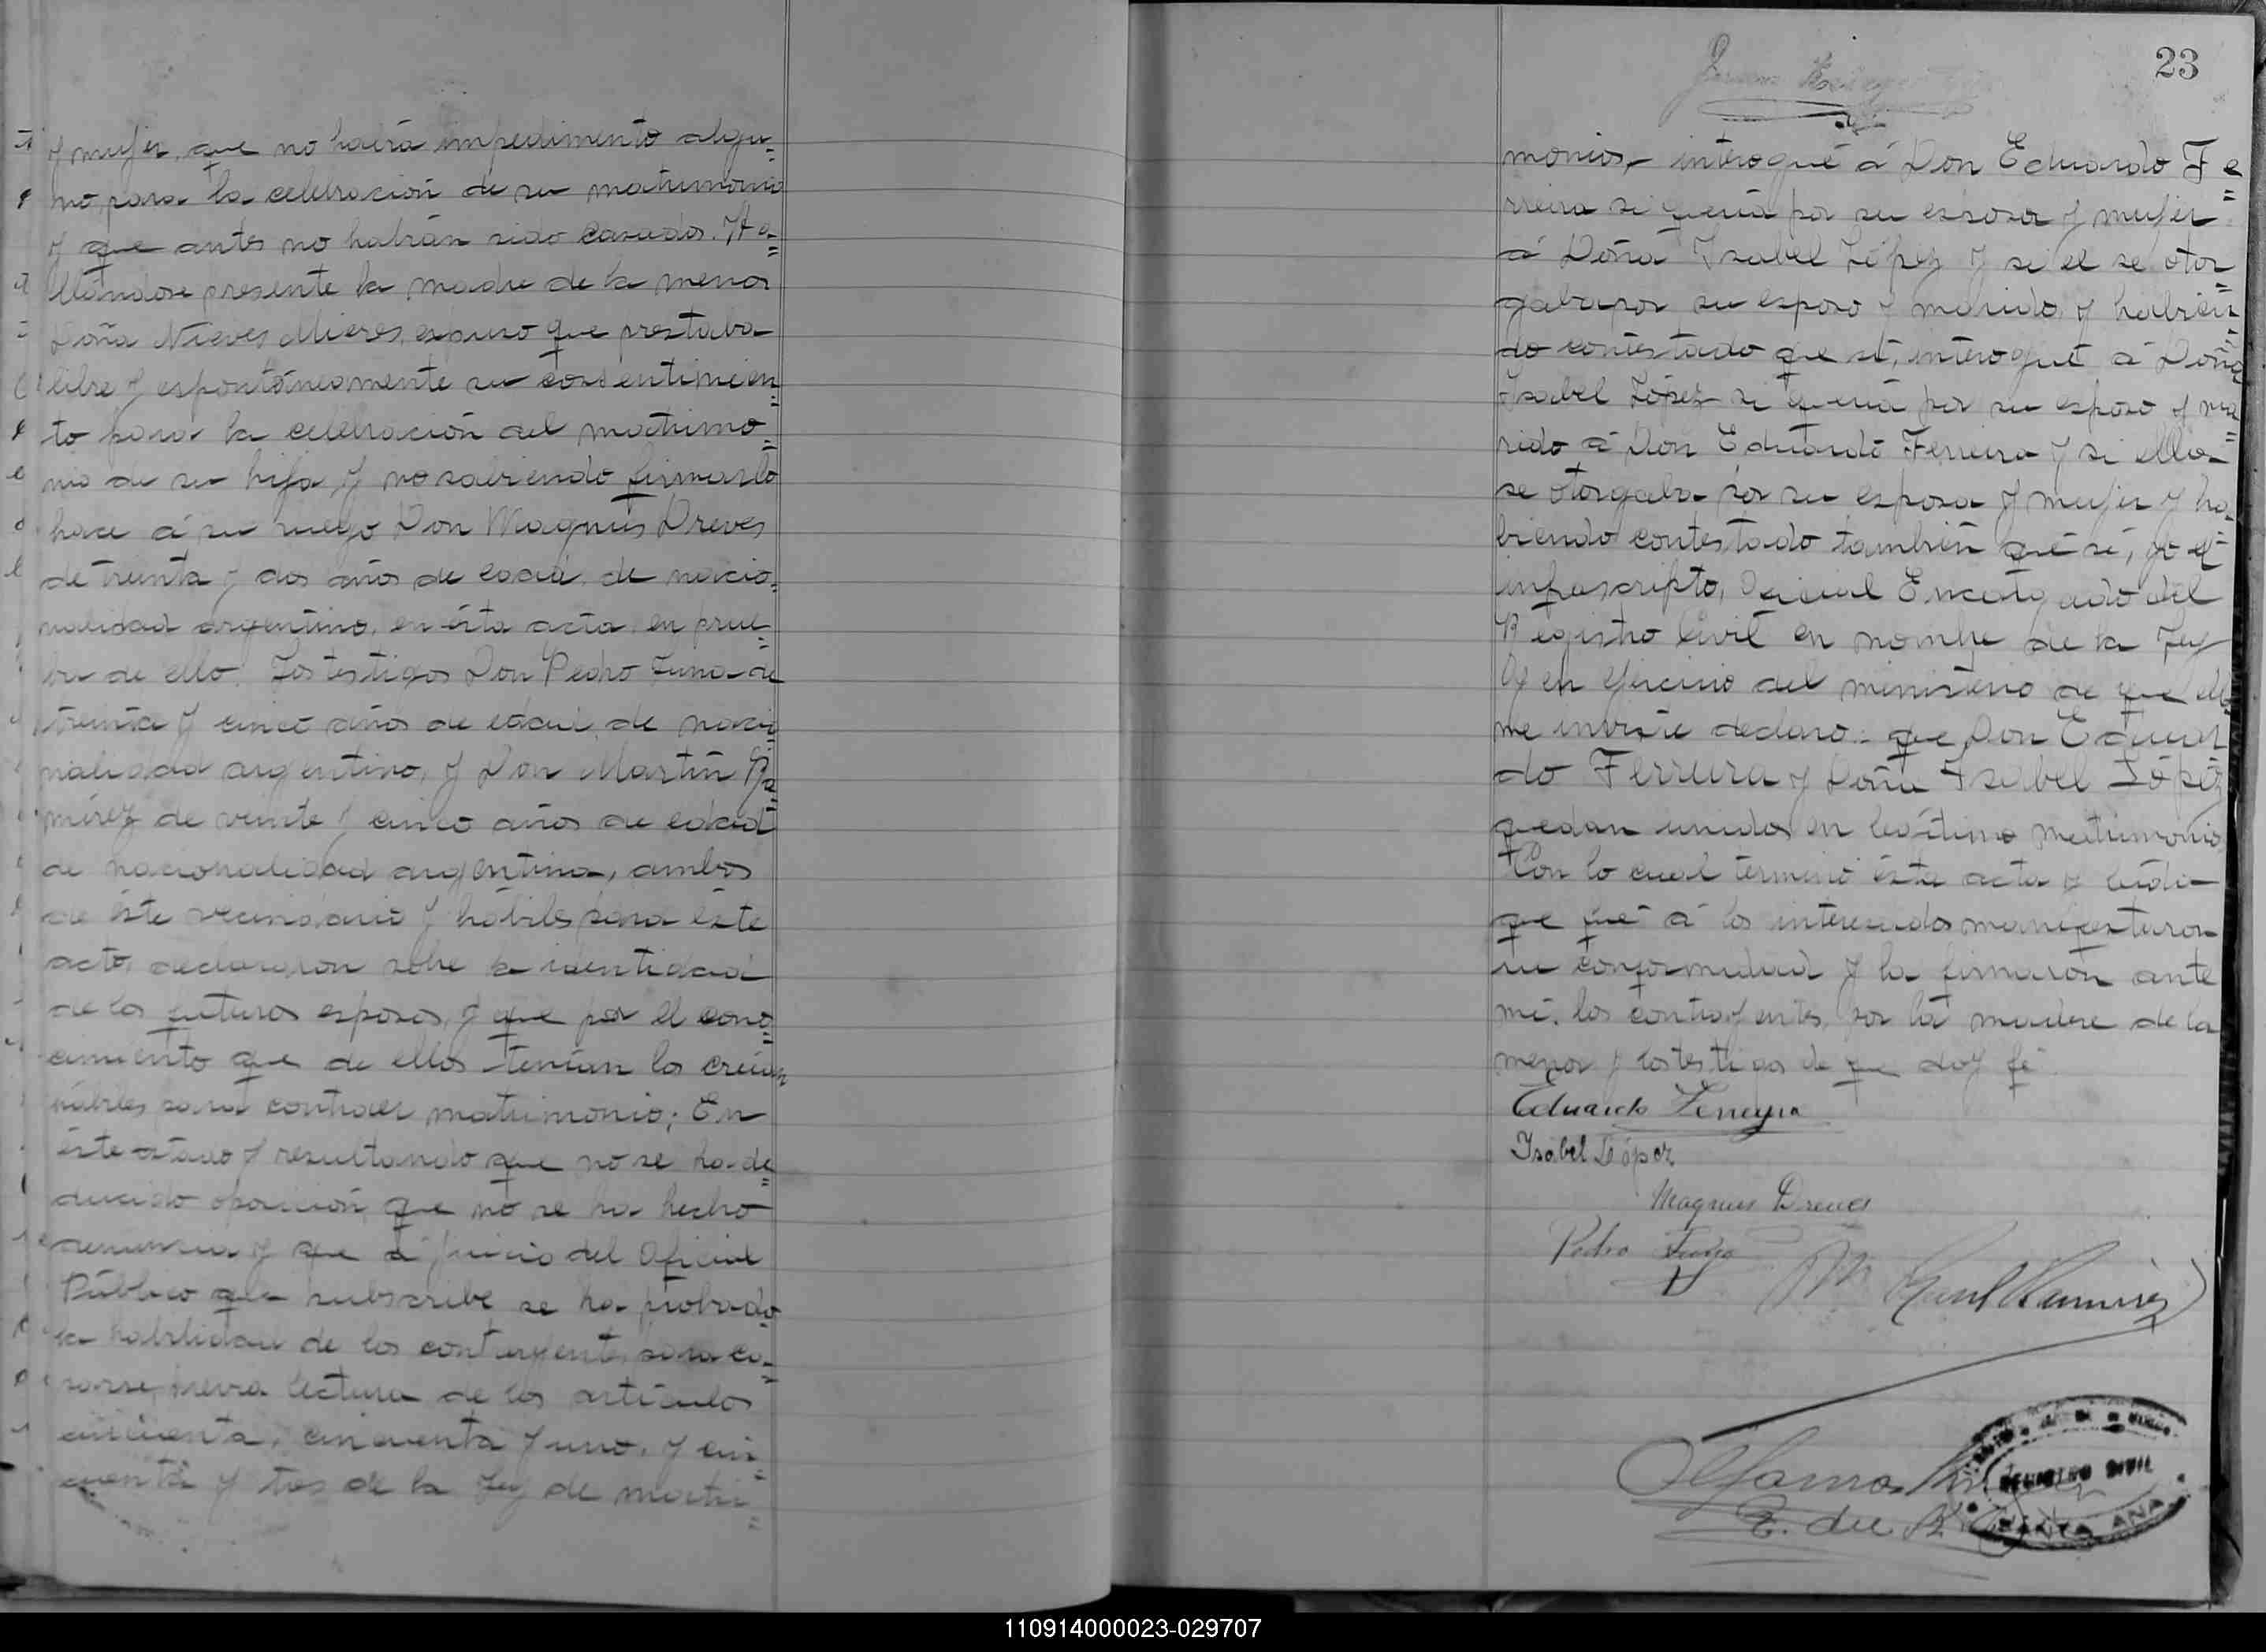 y mujer, que no había impedimento algu=
no, para la celebración de su matrimonio
y que antes no habían sido casados. Ha=
llándose presente la madre de la menor
Doña Nieves Mieres, espuso que prestaba
libre y espontáneamente su consentimien=
to para la celebración del matrimo=
nio de su hija, y no sabiendo firmar lo
hace á su ruego Don Magnus Dreves
de treinta y dos años de edad, de nacio=
nalidad argentino, en ésta acta, en prue=
ba de ello. Los testigos Don Pedro Luna de
treinta y cinco años de edad, de nacio=
nalidad argentino, y Don Martín Ra=
mírez de veinte y cinco años de edad
de nacionalidad argentina, ambos
de éste vecindario y hábiles para éste
acto, declararon sobre la identidad
de los futuros esposos, y que por el cono=
cimiento que de ellos tenían los creían
hábiles para contraer matrimonio; En
éste estado y resultando que no se ha de=
ducido oposición, que no se ha hecho
denuncia y que á juicio del Oficial
Público que subscribe se ha probado
la habilidad de los contrayentes para ca=
sarse, previa lectura de los artículos
cincuenta, cincuenta y uno, y cin=
cuenta y tres de la Ley de matri=
23
monios, interogué á Don Eduardo Fe=
rreira si quería por su esposa y mujer
á Doña Isabel López y si el se otor=
gaba por su esposo y marido, y habien=
do contestado que sí, interogué á Doña
Isabel López si quería por su esposo y ma=
rido á Don Eduardo Ferreira y si ella
se otorgaba por su esposa y mujer y ha=
biendo contestado también que sí, yo el
infrascripto, Oficial Encargado del
Registro Civil en nombre de la Ley
y en ejercicio del ministerio de que ella
me inviste declaro: que Don Eduar=
do Ferreira y Doña Isabel López
quedan unidos en legítimo matrimonio.
Con lo cual terminó ésta acta y leída
que fué á los interesados manifestaron
su conformidad y la firmaron ante
mí, los contrayentes, por la madre de la
menor y los testigos de que doy fé.
Eduardo Ferreyra
Isabel López
Magnus Dreves
Pedro Luna
Ramírez
REGISTRO CIVIL
SANTA ANA
110914000023-029707